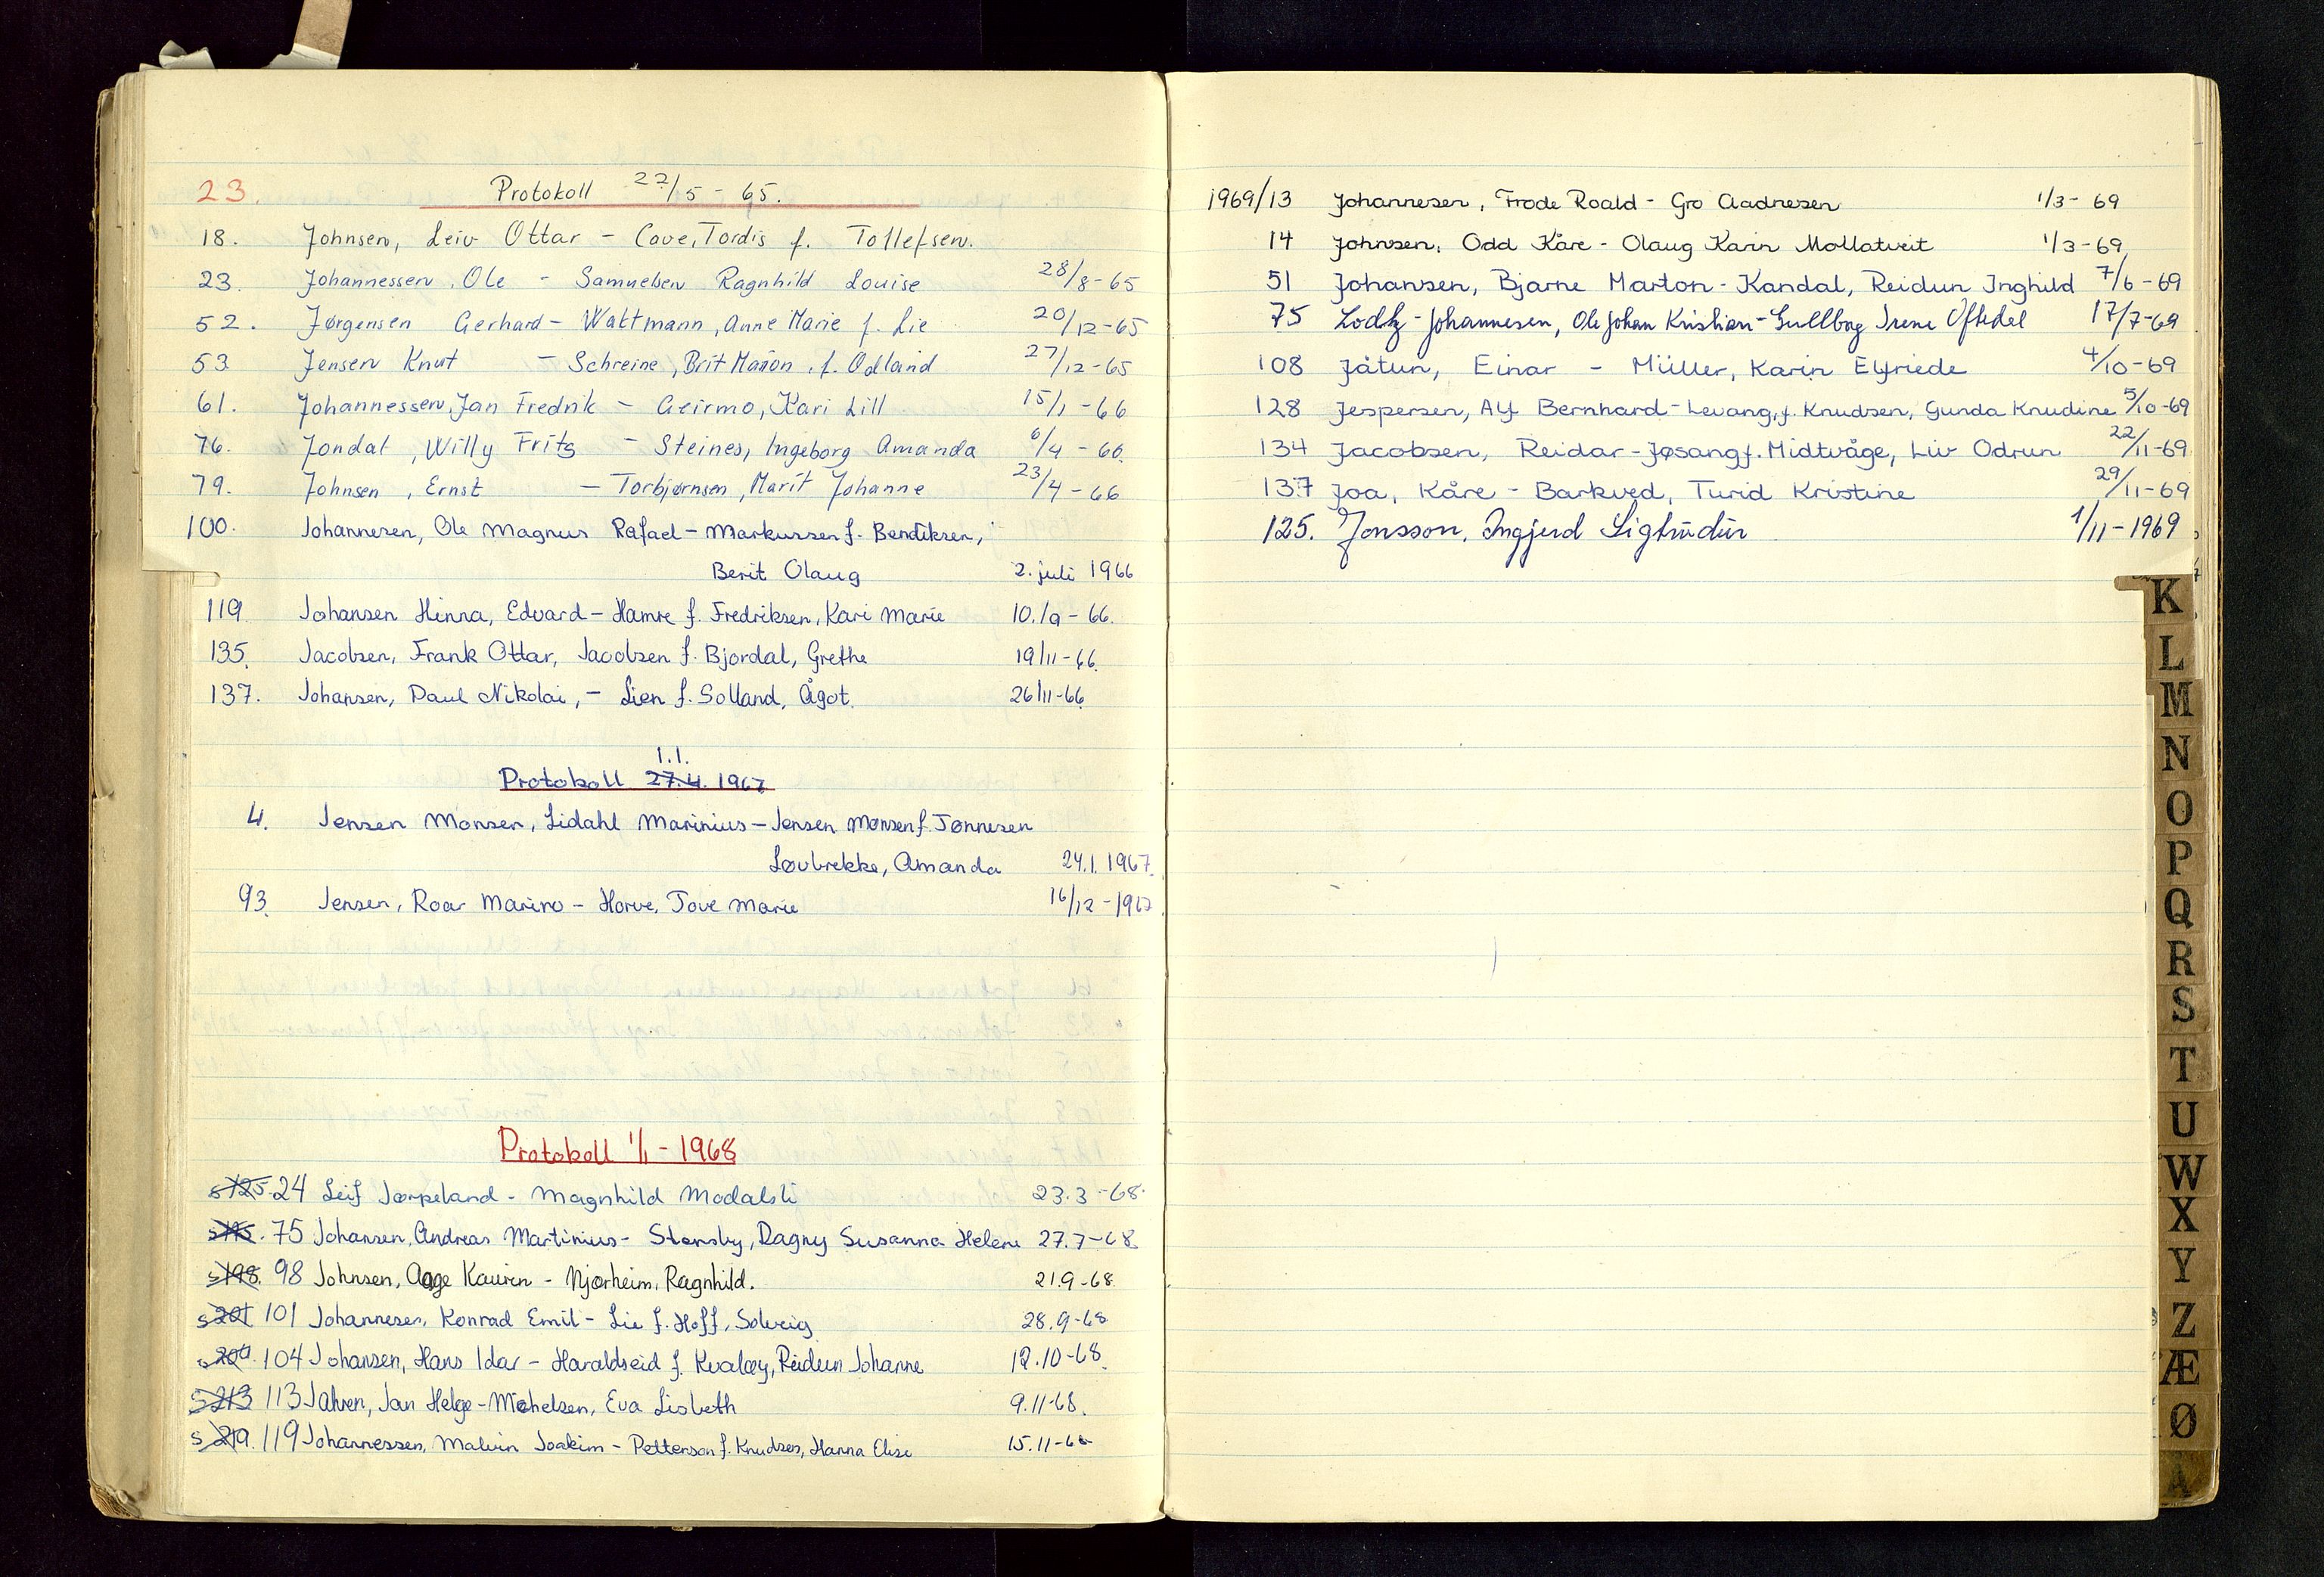 23. Protokoll 22/5 - 65.
18. Johnsen, Leiv Ottar - Cove, Tordis f. Tollefsen.
23. Johannessen, Ole - Samuelsen Ragnhild Louise 28/8-65
52. Jørgensen Gerhard - Waltmann, Anne Marie f. Lie 20/12-65
53 Jensen Knut - Schreine, Brit Marion, f. Odland 27/12-65
61. Johannessen, Jan Fredrik - Geirmo, Kari Lill 15/1-66
76. Jondal, Willy Frits - Steines, Ingeborg Amanda 6/4-66.
79. Johnsen, Ernst - Torbjørnsen, Marit Johanne 23/4-66
100. Johannesen, Ole Magnus Rafael - Markussen f. Bendiksen,
Berit Olaug 2. juli 1966
119 Johansen Hinna, Edvard - Hamre f. Fredriksen, Kari Marie 10./9-66.
135. Jacobsen, Frank Ottar, Jacobsen f. Bjordal, Grethe 19/11-66.
137. Johansen, Paul Nikolai, - Lien f. Solland, Ågot. 26/11-66
1.1.
Protokoll 27.4. 1967
4. Jensen Monsen, Lidahl Marinius - Jensen Monsen f. Tønnesen
Løvbrekke, Amanda 24.1.1967.
93. Jensen, Roar Marino - Horve, Tove Marie 16/12-1967.
Protokoll 1/1-1968
s 125. 24 Leif Jørpeland - Magnhild Modalsli 23.3-68.
75 Johansen, Andreas Martinius - Stensby, Dagny Susanna Helene 27.7-68
s 198. 98 Johnsen, Aage Kaurin - Njærheim, Ragnhild. 21.9-68.
s 201 101 Johannesen, Konrad Emil - Lie f. Hoff, Solveig 28.9-68
s 204. 104 Johansen, Hans Idar - Haraldseid f. Kvaløy, Reidun Johanne 12.10-68.
s 213 113 Jahren, Jan Helge - Michelsen, Eva Lisbeth 9.11-68.
s 219. 119 Johannessen, Malvin Joakim - Petterson f. Knudsen, Hanna Elise 15.11-68
1969/13 Johannesen, Frode Roald - Gro Aadnesen 1/3-69
14 Johnsen, Odd Kåre - Olaug Karin Mollatveit 1/3-69
51 Johansen, Bjarne Marton - Kandal, Reidun Inghild 7/6-69
75 Johannesen, Ole Johan Kristian - Gullborg Irene Oftedal 17/7-69
108 Jåtun, Einar - Müller, Karin Elfriede 4/10-69
128 Jespersen, Alf Bernhard - Levang, f. Knudsen, Gunda Knudine 5/10-69
134 Jacobsen, Reidar - Jøsang f. Midtvåge, Liv Odrun 22/11-69
137 Joa, Kåre - Barkved, Turid Kristine 29/11-69
125. Jonsson, Ingjerd Sigtrudur 1/11-1969
K
L
M
N
O
P
Q
R
S
T
U
W
X
Y
Z
Æ
Ø
A